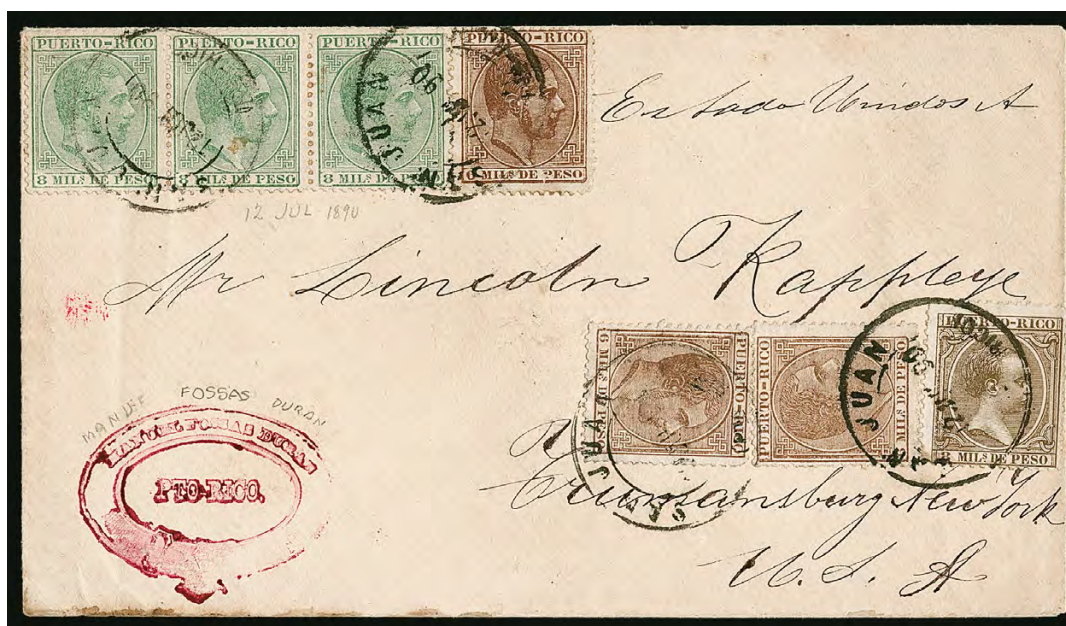 PUERTO-RICO PUERTO-RICO PUERTO-RICO
8 MILS DE PESO 8 MILS DE PESO 8 MILS DE PESO 6 MILS DE PESO
SAN JUAN
SAN JUAN
Estados Unidos A
12 JUL 1890
Mr Lincoln Rappleye
PUERTO-RICO
6 MILS DE PESO
PUERTO-RICO
MILS DE PESO
PUERTO-RICO
8 MILS DE PESO
SAN JUAN
SAN JUAN
FOSSAS DURAN
MANUEL FOSSAS DURAN
PTO-RICO.
Trumansburg New York
U. S. A